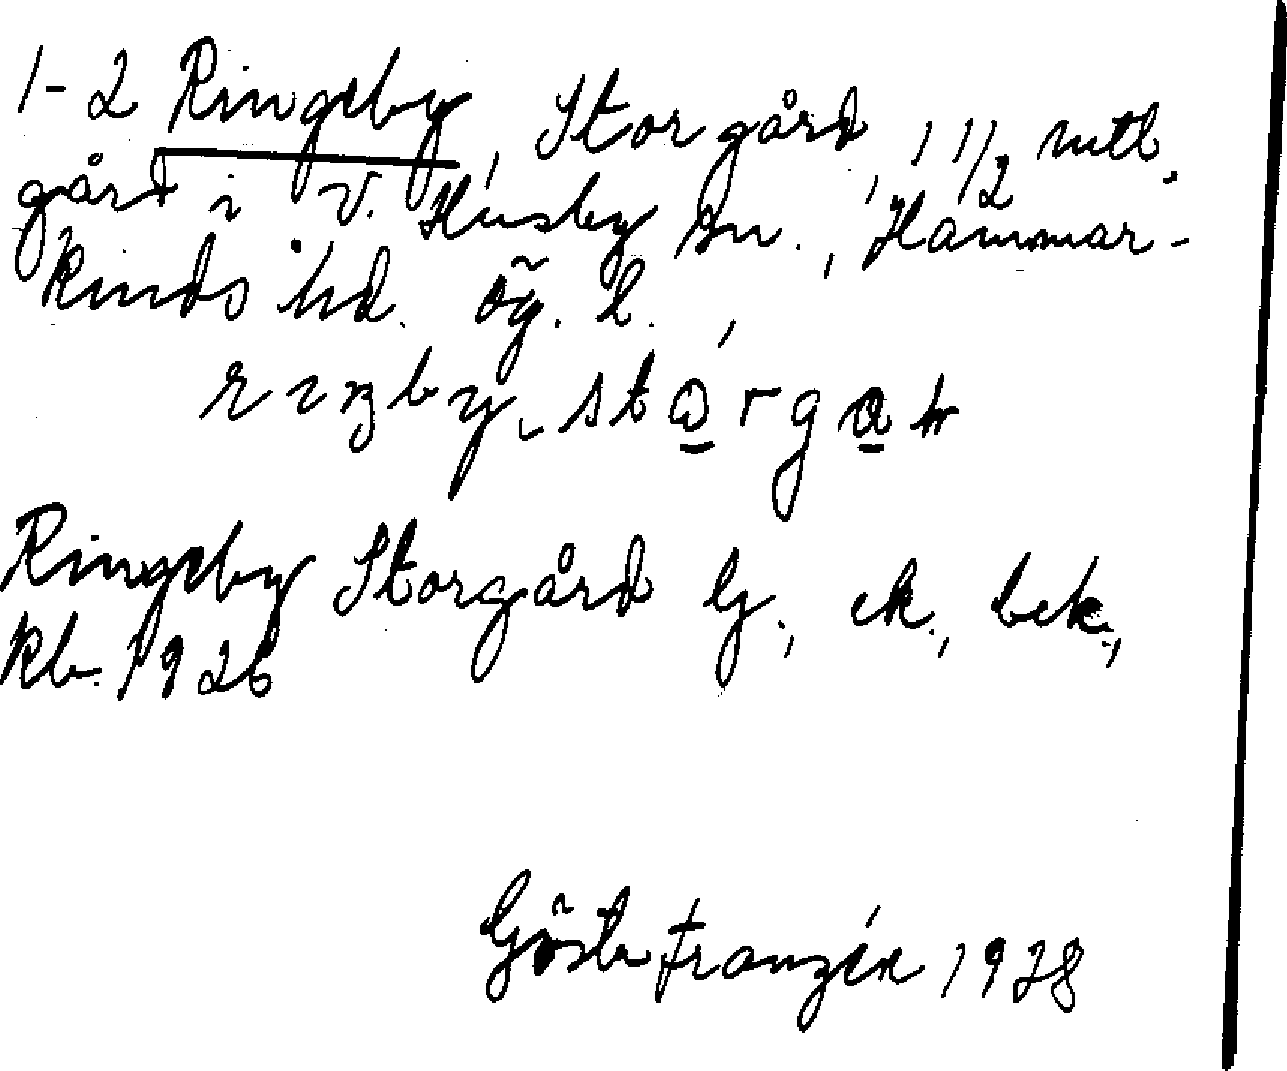 1-2 Ringeby, Storgård, 1 1/2 mtl.
gård i V. Husby sn., Hammar-
kinds hd. Ög. l.,
Ringeby Storgård G., ek., bek.,
kb. 1926
Gösta Franzén 1928